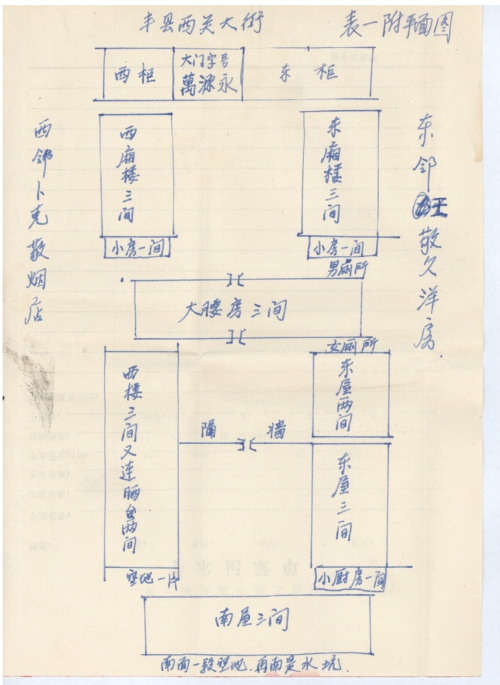 丰县西关大街
表一附平面图
西柜
大门字号
萬源永
东柜
西邻卜克敬烟店
西廂楼三间
东廂楼三间
东邻王敬久洋房
小房一间
小房一间
男厕所
大腰房三间
女厕所
西楼三间又连晒台两间
东屋两间
隔墙
东屋三间
空地一片
小厨房一间
南屋三间
南面一段空地.再南是水坑.